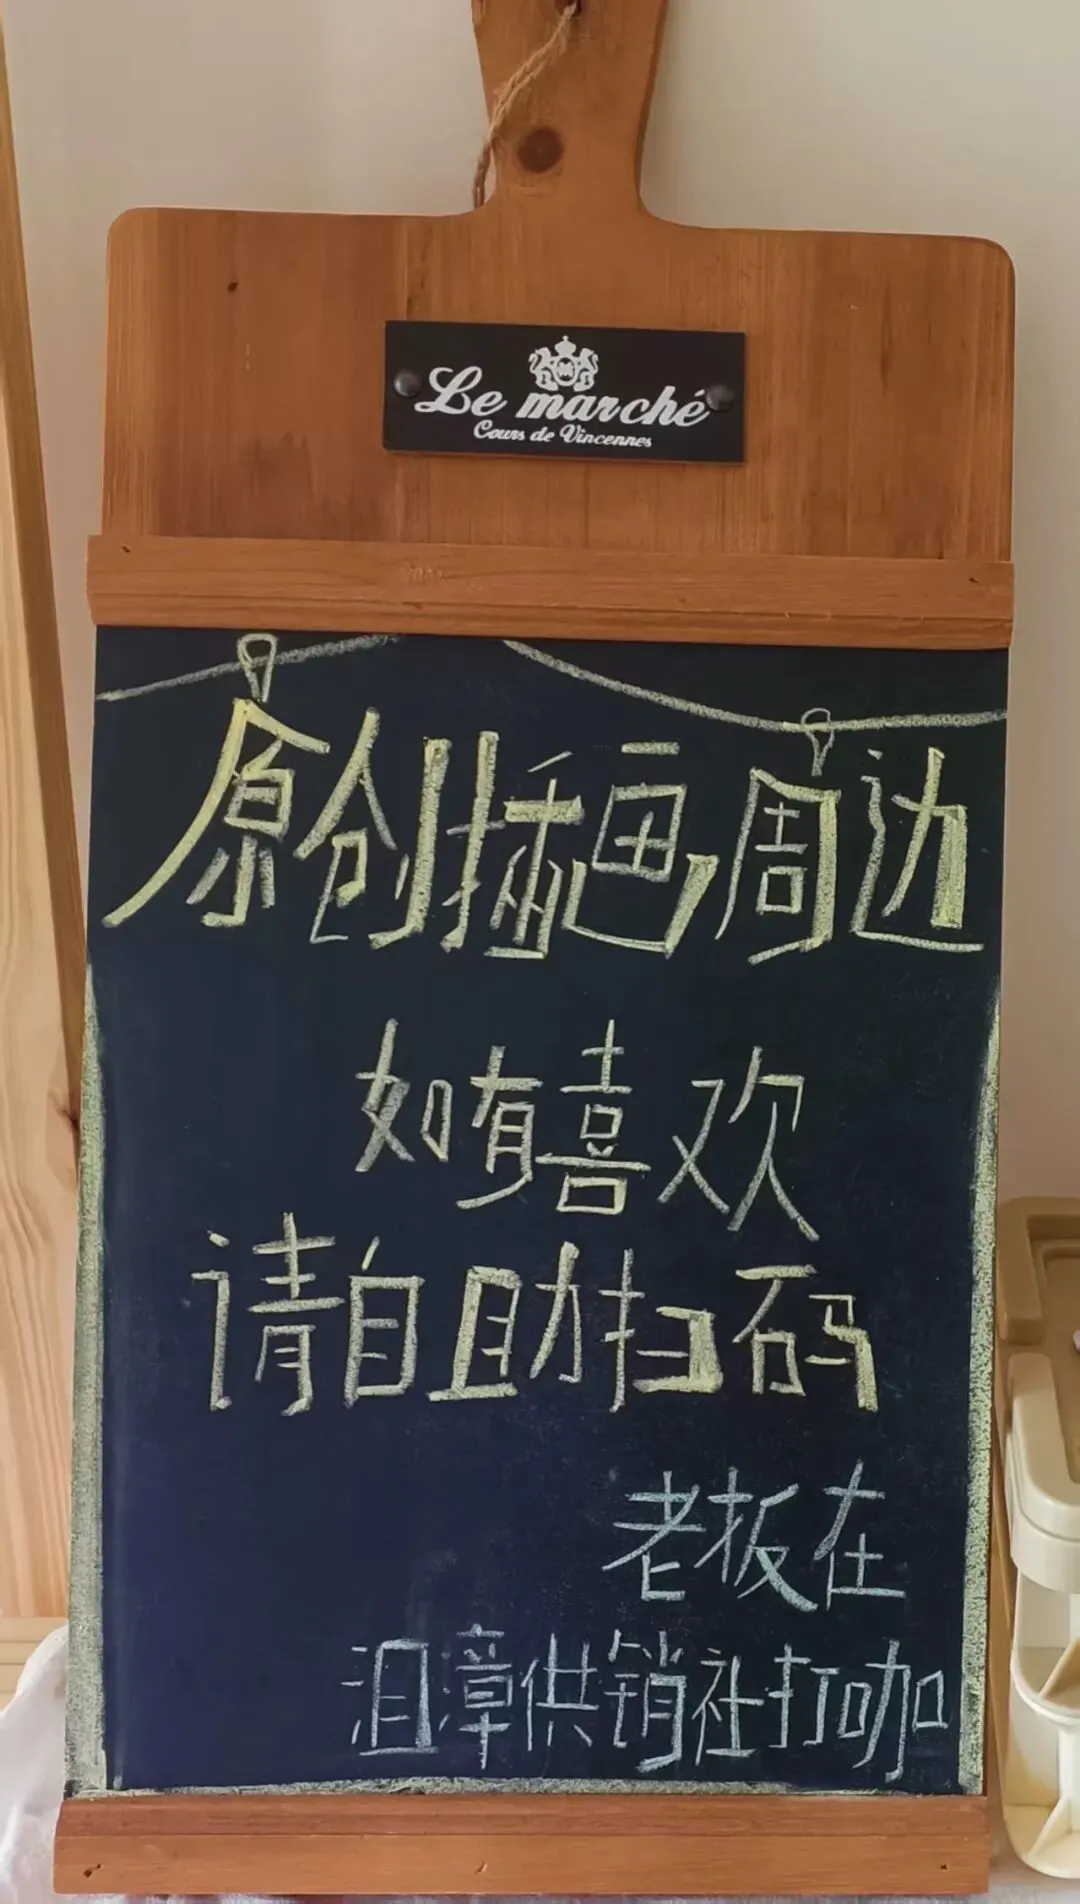 Le marché
Cours de Vincennes
原创插画周边
如有喜欢
请自助扫码
老板在
沮漳供销社打咖